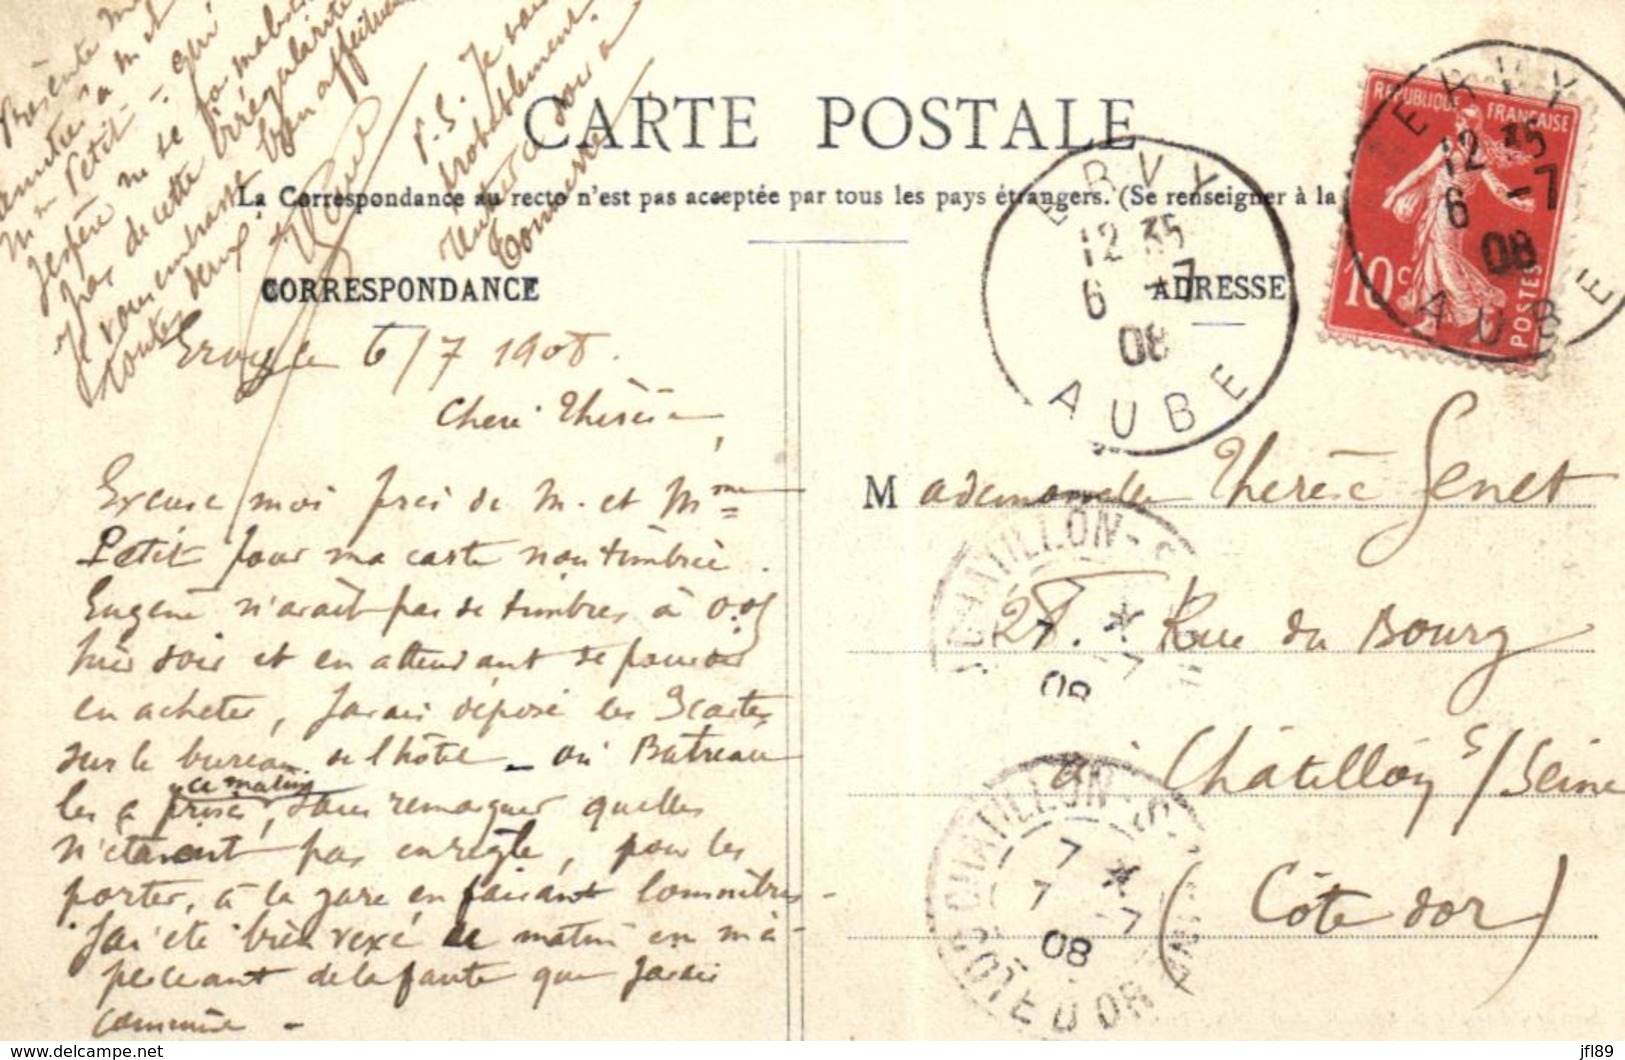 CARTE POSTALE
La Correspondance au recto n'est pas acceptée par tous les pays étrangers. (Se renseigner à la
CORRESPONDANCE
ADRESSE
Ervy le 6/7 1908.
Chere Thérèse,
Excuse moi près de M. et Mme
Petit pour ma carte non timbrée.
Eugène n'avait pas de timbres à 0.05
hier soir et en attendant de pouvoir
en acheter, j'avais déposé les 3 cartes
sur le bureau de l'hôtel - où Butreau
les a prises ce matin, sans remarquer quelles
n'étaient pas en règle, pour les
porter, à la gare en faisant
J'ai été bien vexé ce matin en m'a-
percevant de la faute que j'avais
commise -
Présente
à M et
Mme Petit - qui
j'espère ne se
pas de cette irrégularité
Je vous embrasse bien
toutes deux
P.S. Je
probablement
Tonnerre
Mademoiselle Thérèse Genet
28. Rue du Bourg
à Châtillon s/Seine
(Côte d'or)
REPUBLIQUE FRANÇAISE
10c
POSTES
ERVY
12 35
6 -7
08
AUBE
ERVY
12 35
6 -7
08
AUBE
CHATILLON-S
7 *
7 -7
08
CHATILLON-S
7 *
7 -7
08
COTE D'OR
delcampe.net
jfl89